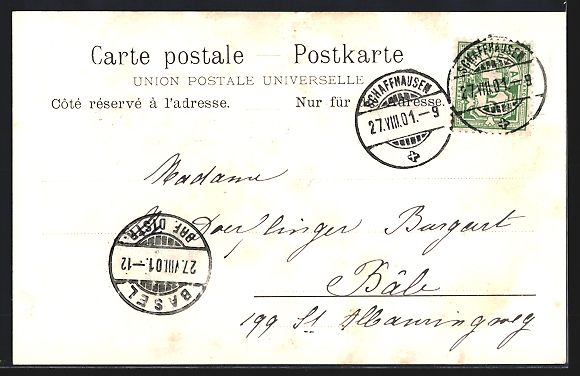 Carte postale — Postkarte
UNION POSTALE UNIVERSELLE
Côté réservé à l'adresse. Nur für Adresse.
SCHAFFHAUSEN
27.VIII.01.–9
SCHAFFHAUSEN
27.VIII.01.–9
Madame
Doeflinger Burgart
Bâle
199 St Albanringweg
BRF. DISTR.
27.VIII.01.–12
BASEL